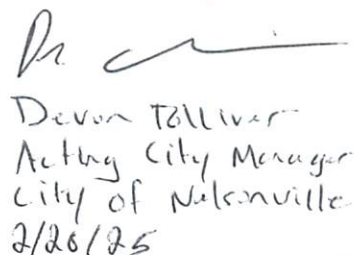 Devon Tolliver
Acting City Manager
City of Nelsonville
2/20/25